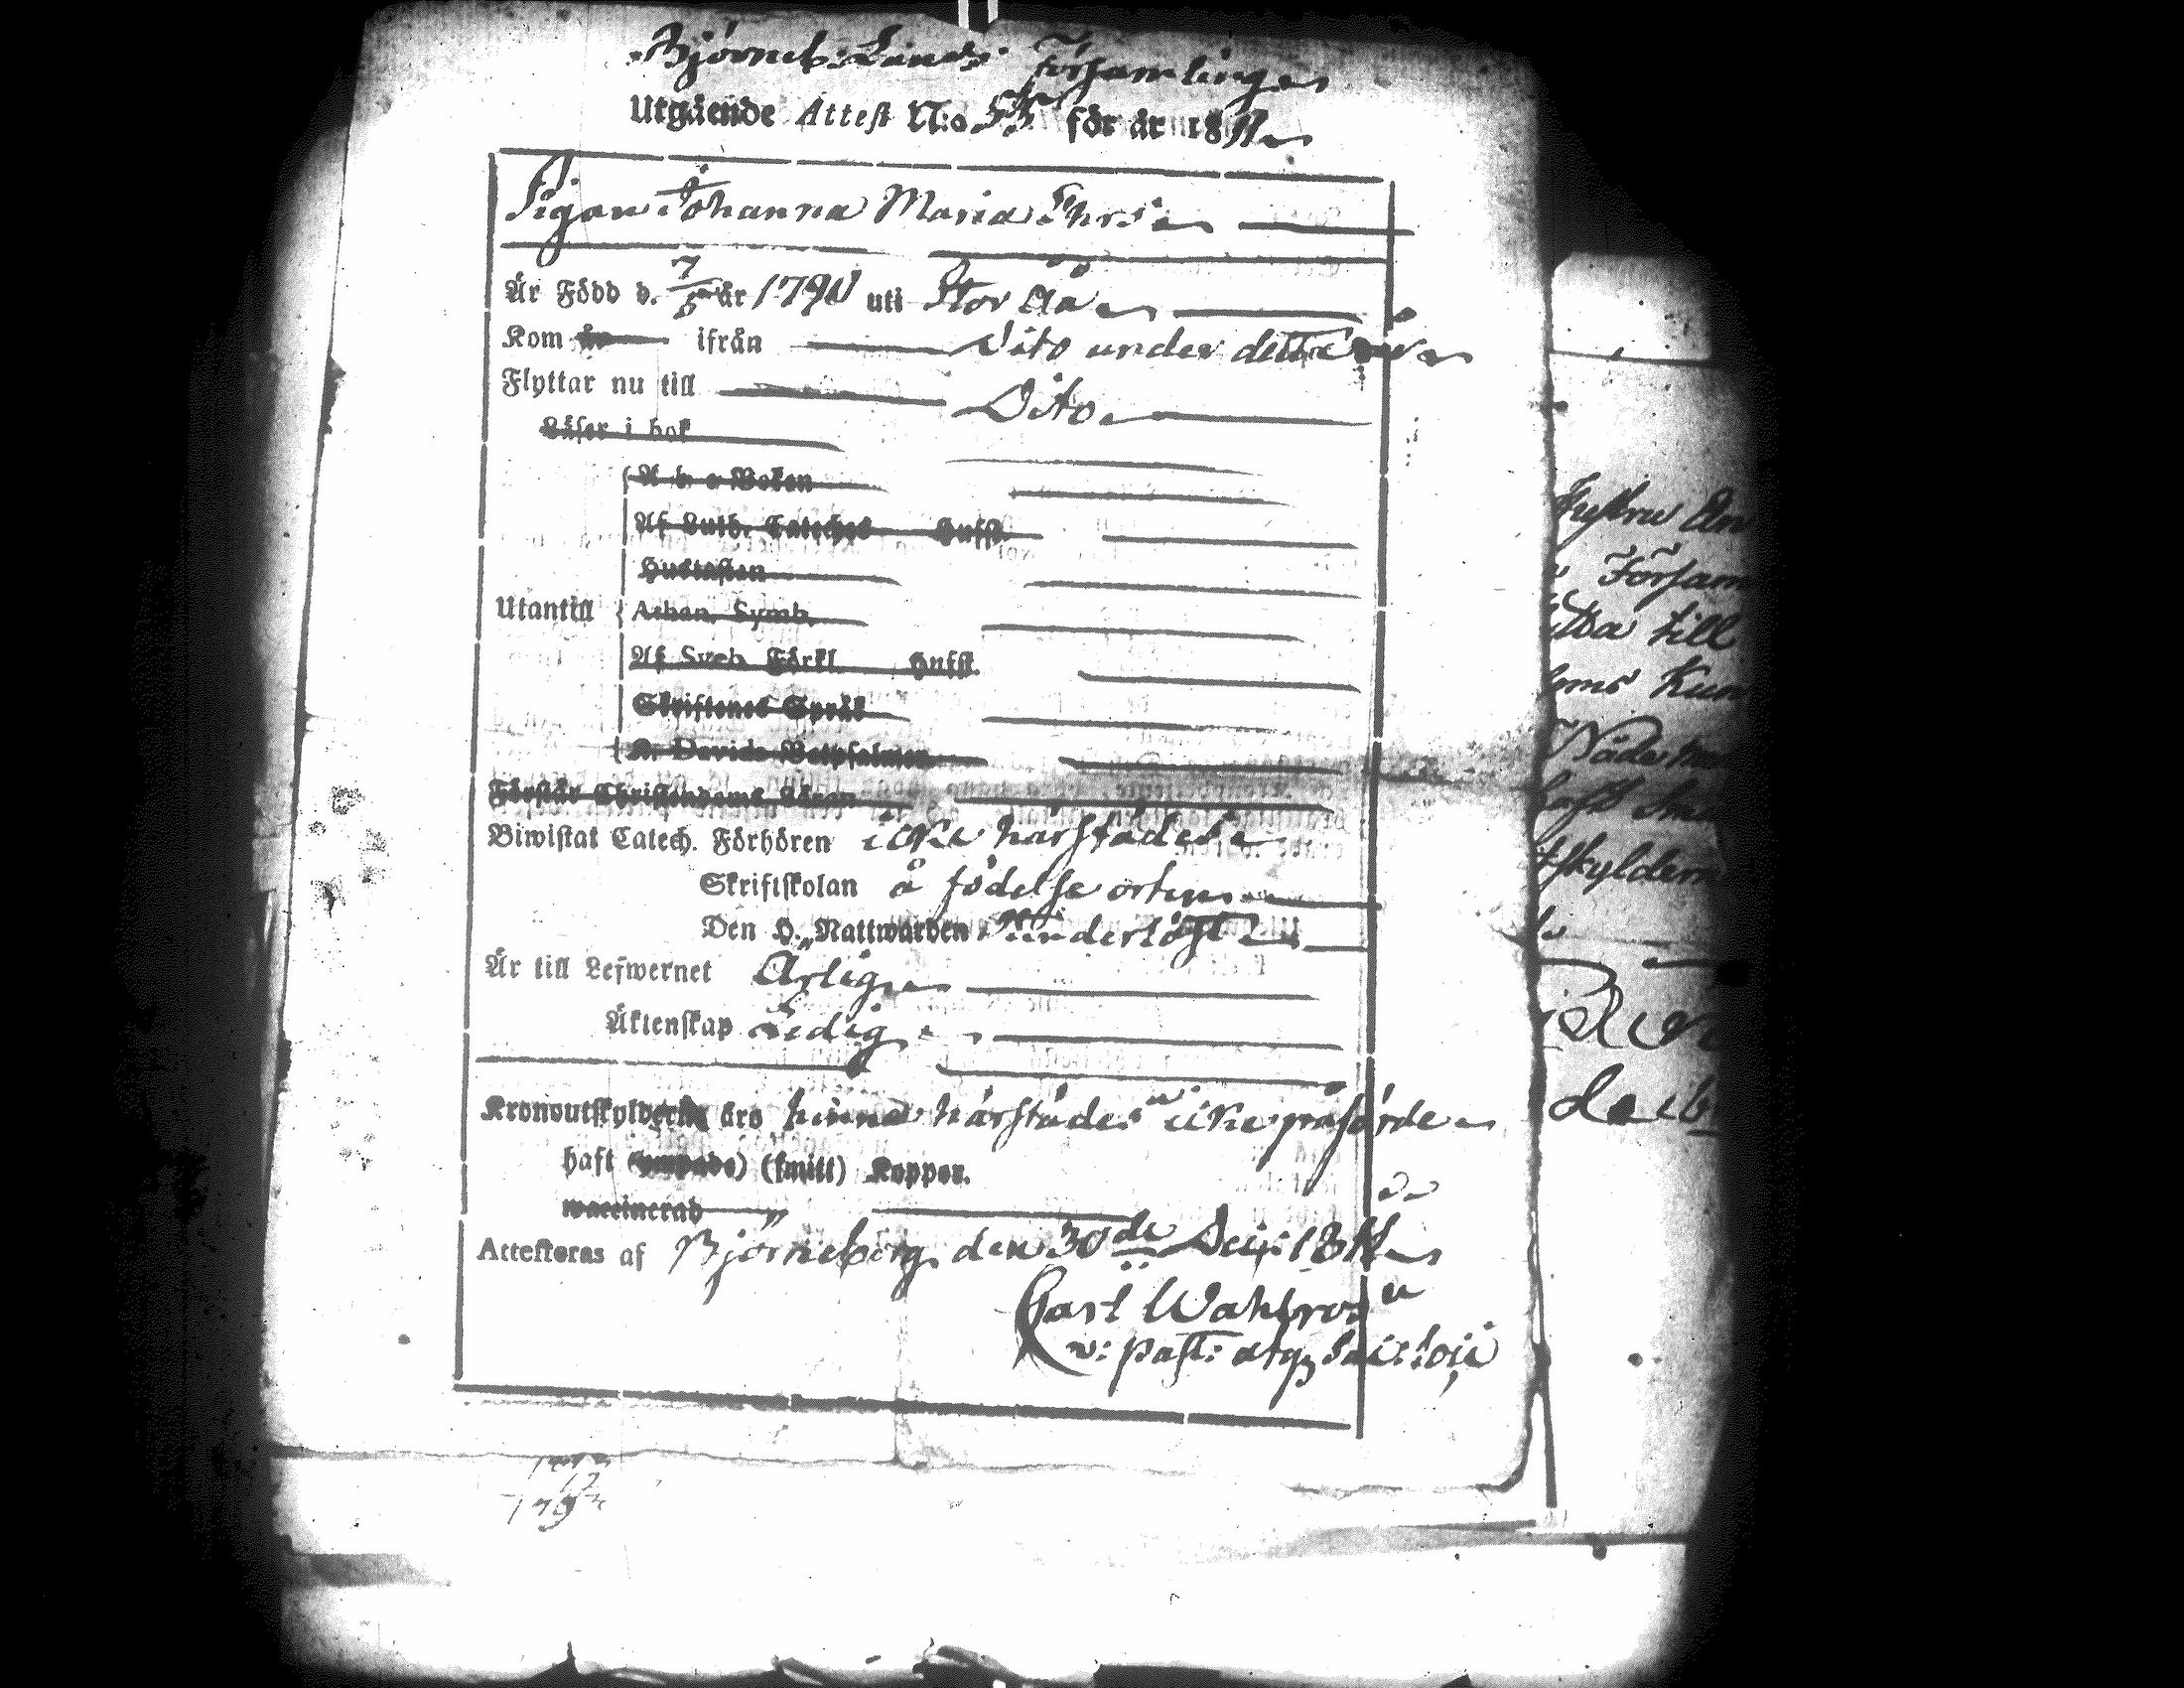 Björneb: Lands Församling
Utgående Attest N:o 53 för år 18
Pigan Johanna Maria Thrs:
Är Född d. 7/5 år 1790 uti Stor Åå
Kom år ifrån Dito under detta år
Flyttar nu till Dito
Läser i bok
A b c Boken
Af Luth. Cateches Hufst.
Hustaflan
Utantill Athan. Symb.
Af Sveb. Förkl. Hufst.
Skriftenes Språk
K. Davids Botpsalmer
Förstår Christendoms Läran
Biwistat Catech. Förhören icke härstädes
Skriftskolan å födelse orten
Den H. Nattwarden
Är till Lefwernet Ärlig
Äktenskap Ledig
Kronoutskylderna äro henne härstädes icke påförde
haft (ympade) (smitt) Koppor.
waccinerad
Attesteras af Björneborg den 30de Dec: 18
Carl Wahlroos
v: past: atq sac:
Försam
till
Kun